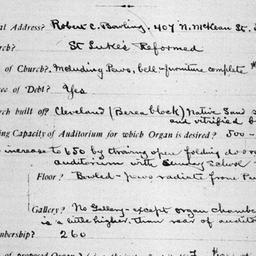 al Address? Robert C. Bowling, 407 N. McKean St.
urch? St Luke's Reformed
of Church? Including Pews, bell-furniture complete
ree of Debt? Yes
rch built of? Cleveland (Berea block) Native Sand s
and vitrified b
ing Capacity of Auditorium for which Organ is desired? 500 -
increase to 650 by throwing open folding doors
auditorium with Sunday School
Floor? Bowled - pews radiate from Pu
Gallery? No Gallery - except organ chamber
is a little higher than rear of audito
mbership? 260
of proposed Organ